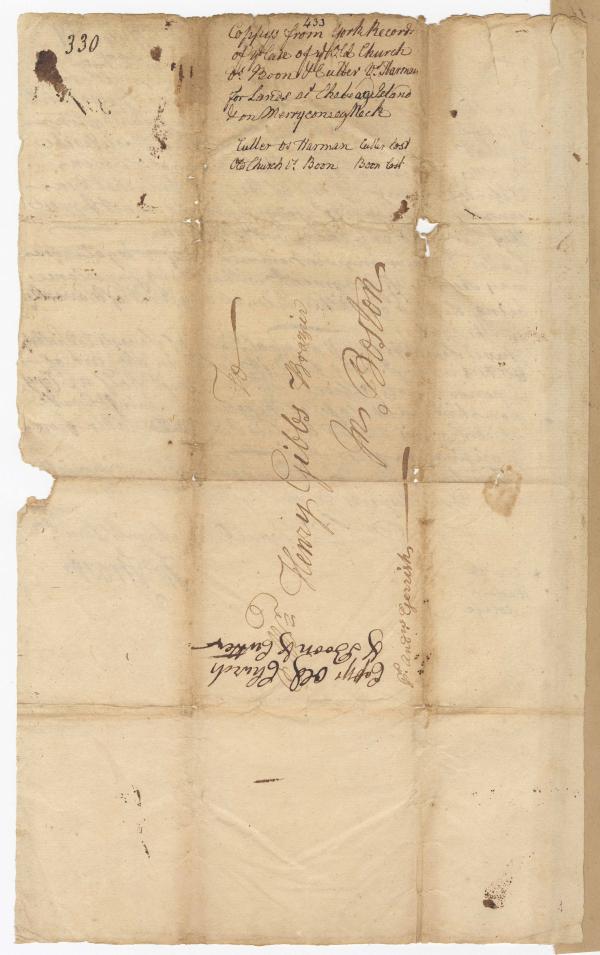 330
433
Coppys from York Records
of ye Case of ye Old Church
vs. Boon & Cutter vs. Harman
for Lands at Chebeag Island
& on Merryconeag Neck
Cutter vs Harman Cutter Cast
Old Church vs. Boon Boon Cast
To
Henry Gibbs Brazier
In Boston
Copys Old Church
& Boon & Cutter
Gerrish